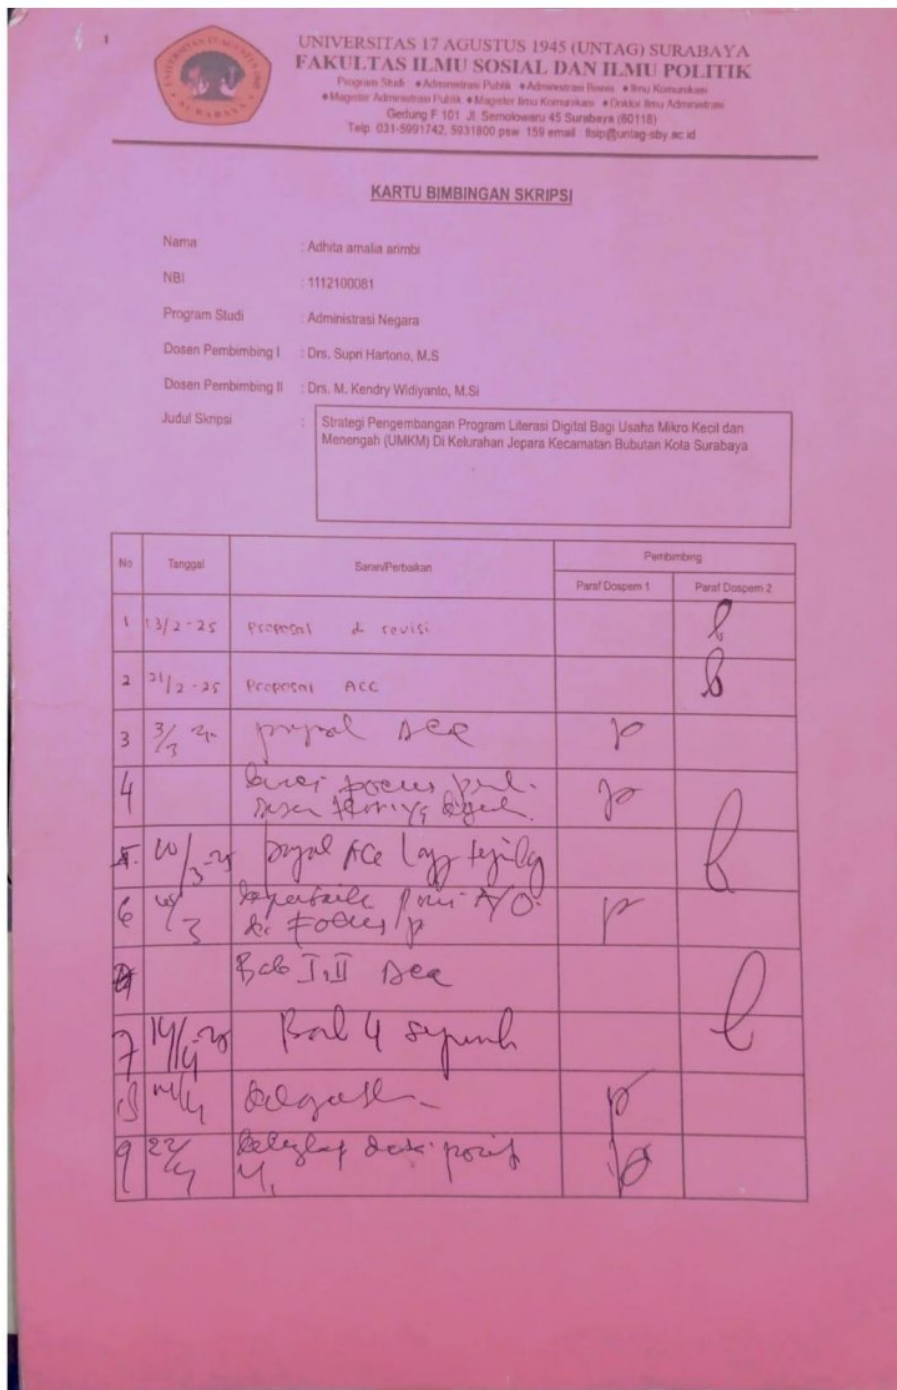 UNIVERSITAS 17 AGUSTUS 1945 (UNTAG) SURABAYA
FAKULTAS ILMU SOSIAL DAN ILMU POLITIK
Program Studi ●Administrasi Publik ●Administrasi Bisnis ●Ilmu Komunikasi
●Magister Administrasi Publik ●Magister Ilmu Komunikasi ●Doktor Ilmu Administrasi
Gedung F 101 Jl. Semolowaru 45 Surabaya (60118)
Telp. 031-5991742, 5931800 psw. 159 email : fisip@untag-sby.ac.id
KARTU BIMBINGAN SKRIPSI
Nama : Adhita amalia arimbi
NBI : 1112100081
Program Studi : Administrasi Negara
Dosen Pembimbing I : Drs. Supri Hartono, M.S
Dosen Pembimbing II : Drs. M. Kendry Widiyanto, M.Si
Judul Skripsi : Strategi Pengembangan Program Literasi Digital Bagi Usaha Mikro Kecil dan
Menengah (UMKM) Di Kelurahan Jepara Kecamatan Bubutan Kota Surabaya
No Tanggal Saran/Perbaikan Pembimbing
Paraf Dospem 1 Paraf Dospem 2
1 13/2-25 Proposal di revisi
2 21/2-25 Proposal ACC
3 3/3 Acc
4 focus
5. /3-25 Acc
6 /3 Focus
Bab I, II Acc
7 14/4-25 Bab 4
8
9 22/4